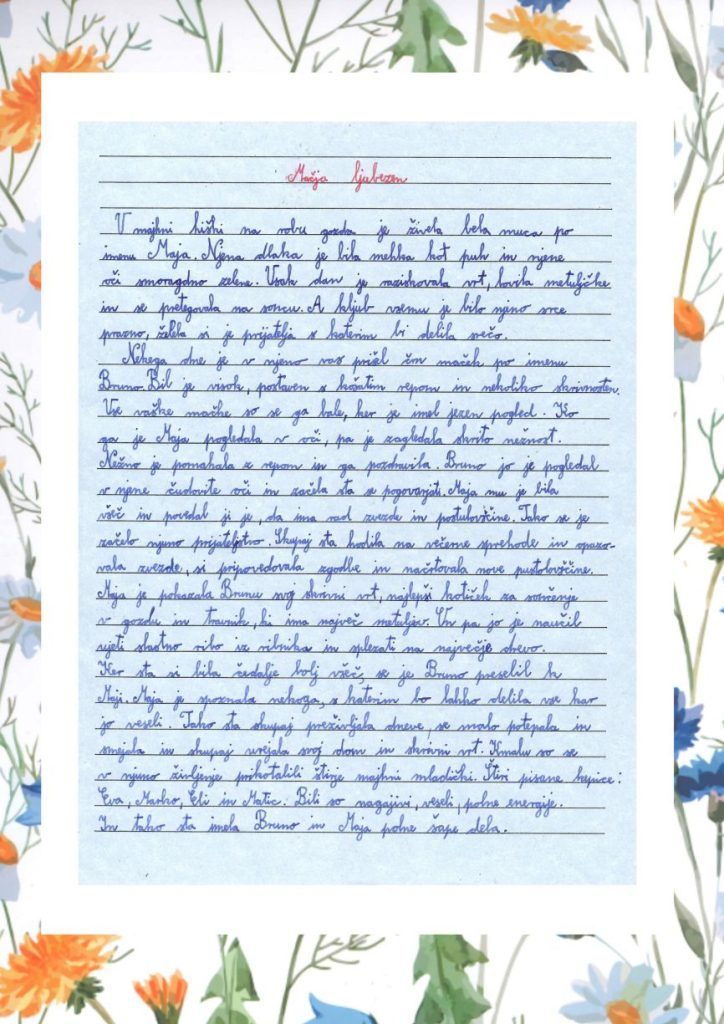 Mačja ljubezen
V majhni hiški na robu gozda je živela bela muca po
imenu Maja. Njena dlaka je bila mehka kot puh in njene
oči smaragdno zelene. Vsak dan je raziskovala vrt, lovila metuljčke
in se pretegovala na soncu. A kljub vsemu je bilo njeno srce
prazno, želela si je prijatelja s katerim bi delila srečo.
Nekega dne je v njeno vas prišel črn maček po imenu
Bruno. Bil je visok, postaven s košatim repom in nekoliko skrivnosten.
Vse vaške mačke so se ga bale, ker je imel jezen pogled. Ko
ga je Maja pogledala v oči, pa je zagledala skrito nežnost.
Nežno je pomahala z repom in ga pozdravila. Bruno jo je pogledal
v njene čudovite oči in začela sta se pogovarjati. Maja mu je bila
všeč in povedal ji je, da ima rad zvezde in pustolovščine. Tako se je
začelo njuno prijateljstvo. Skupaj sta hodila na večerne sprehode in opazo-
vala zvezde, si pripovedovala zgodbe in načrtovala nove pustolovščine.
Maja je pokazala Brunu svoj skrivni vrt, najlepši kotiček za sončenje
v gozdu in travnik, ki ima največ metuljev. Un pa jo je naučil
ujeti slastno ribo iz ribnika in splezati na največje drevo.
Ker sta si bila čedalje bolj všeč, se je Bruno preselil k
Maji. Maja je spoznala nekoga, s katerim bo lahko delila vse kar
jo veseli. Tako sta skupaj preživljala dneve, se malo potepala in
smejala in skupaj urejala svoj dom in skrivni vrt. Kmalu so se
v njuno življenje prikotalili štirje majhni mladički. Štiri pisane kepice:
Eva, Marko, Eli in Matic. Bili so nagajivi, veseli, polne energije.
In tako sta imela Bruno in Maja polne šape dela.